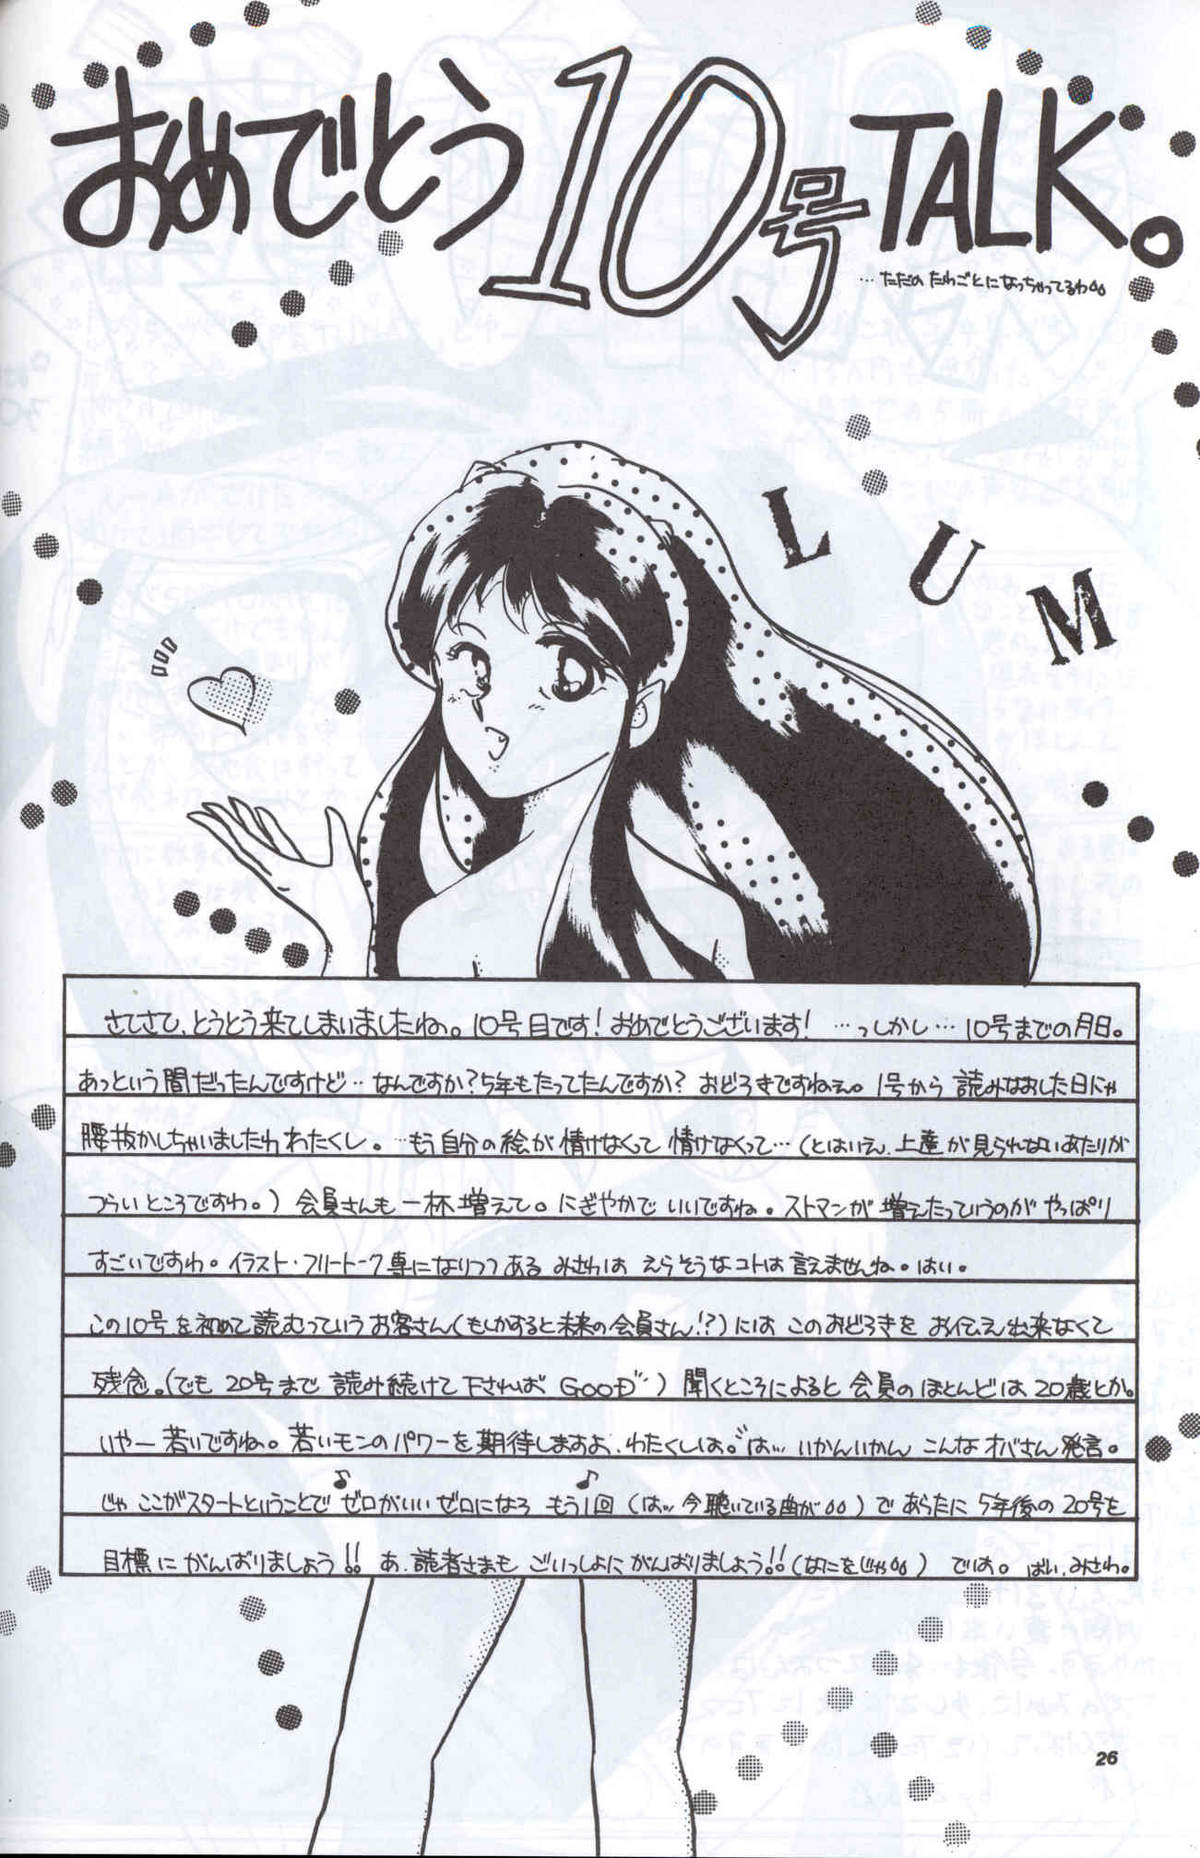 おめでとう10号TALK。
…ただの たわごとになっちゃってるわ。。
LUM
さてさて、とうとう来てしまいましたねの。10号目です!おめでとうございます! …っしかし… 10号までの月日。
あっという間だったんですけど…なんですか?5年もたってたんですか? おどろきですねぇ。1号から 読みなおした日にゃ
腰抜かしちゃいましたわ わたくし。…もう自分の絵が 情けなくって 情けなくって…(とはいえ、上達が見られないあたりが
つらいところですわ。)会員さんも 一杯 増えて。にぎやかで いいですね。ストマンが 増えたっていうのが やっぱり
すごいですわ。イラスト・フリートーク専になりつつある みさわは えらそうなコトは言えませんね。はい。
この10号を初めて読むっていうお客さん(もしかすると未来の会員さん!?)には このおどろきを お伝え出来なくて
残念。(でも 20号まで 読み続けて下されば GOOD")聞くところによると 会員のほとんどは 20歳とか。
いやー若いですね。若いモンのパワーを期待しますよ、わたくしは。はッ いかんいかん こんなオバさん発言。
じゃ ここがスタートということで ♪ゼロがいい ゼロになろ もう1回♪(はッ 今聴いている曲が。。)で あらたに 5年後の20号を
目標に がんばりましょう!! あ、読者さまも ごいっしょに がんばりましょう!!(なにをじゃ。。) では。ばい、みさわ。
26